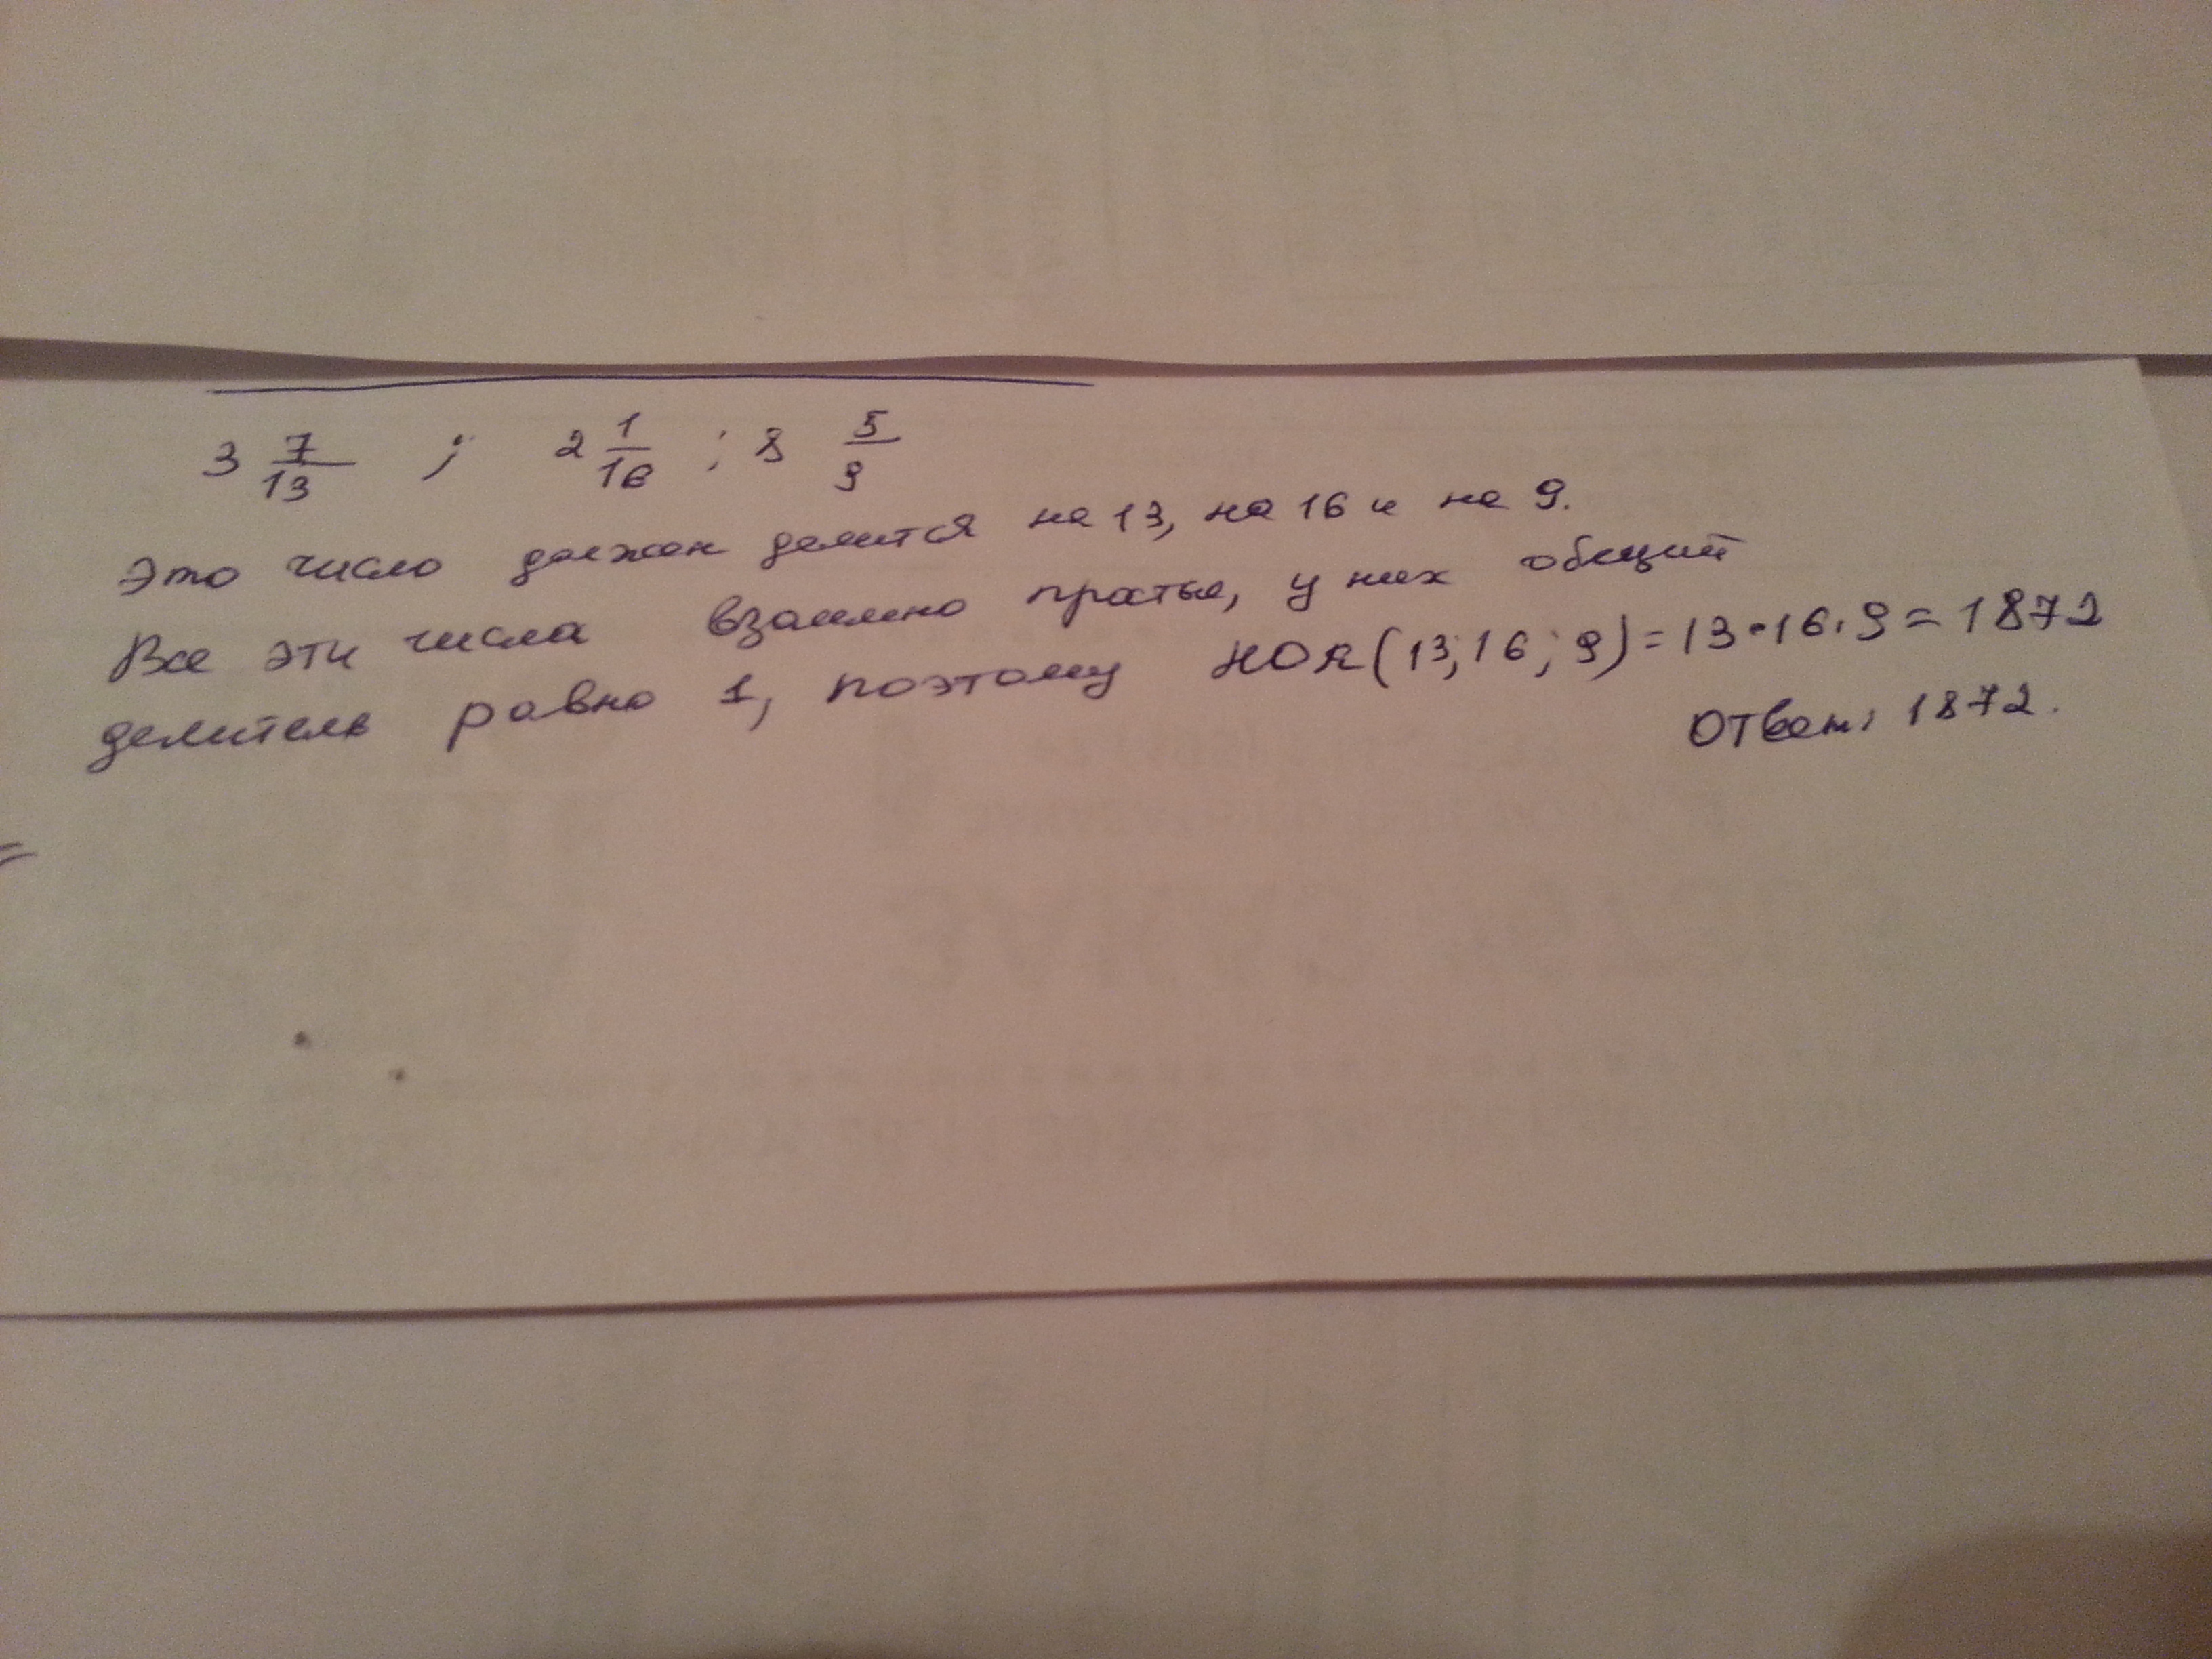 3 7/13 ; 2 1/16 ; 8 5/9
Это число должен делится на 13, на 16 и на 9.
Все эти числа взаимно простые, у них общий
делитель равно 1, поэтому НОК(13;16;9)=13·16·9=1872
Ответ: 1872.
=